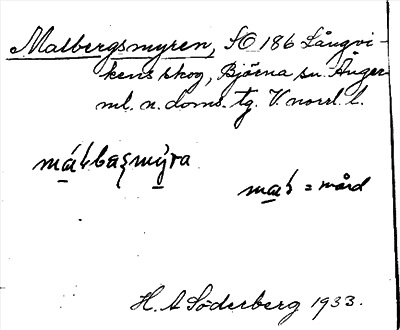 Malbergsmyren, SO 186 Långvi-
kens skog, Björna sn. Ånger
ml. n. doms. tg. V. norrl. l.
mal = mård
H. A Söderberg 1933.